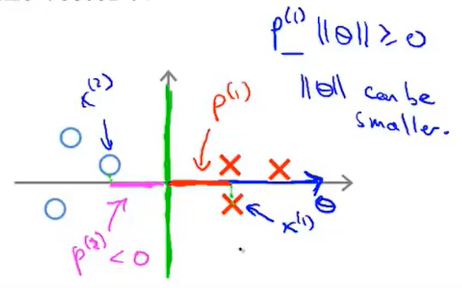 p⁽¹⁾ ||θ|| ≥ 0
||θ|| can be
smaller.
x⁽²⁾
p⁽¹⁾
θ
x⁽¹⁾
p⁽²⁾ < 0